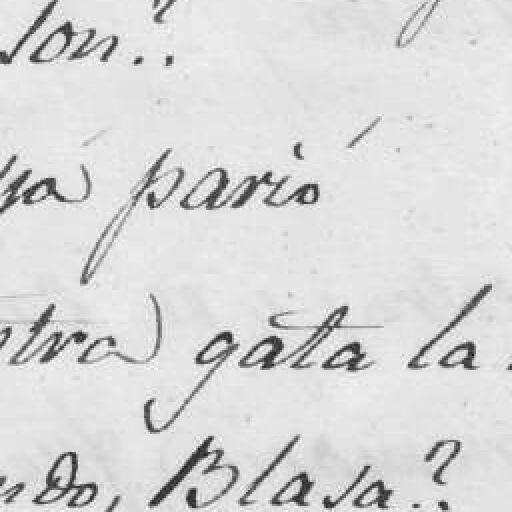 son.?
ya parió
stra gata la
ndo, Blasa?